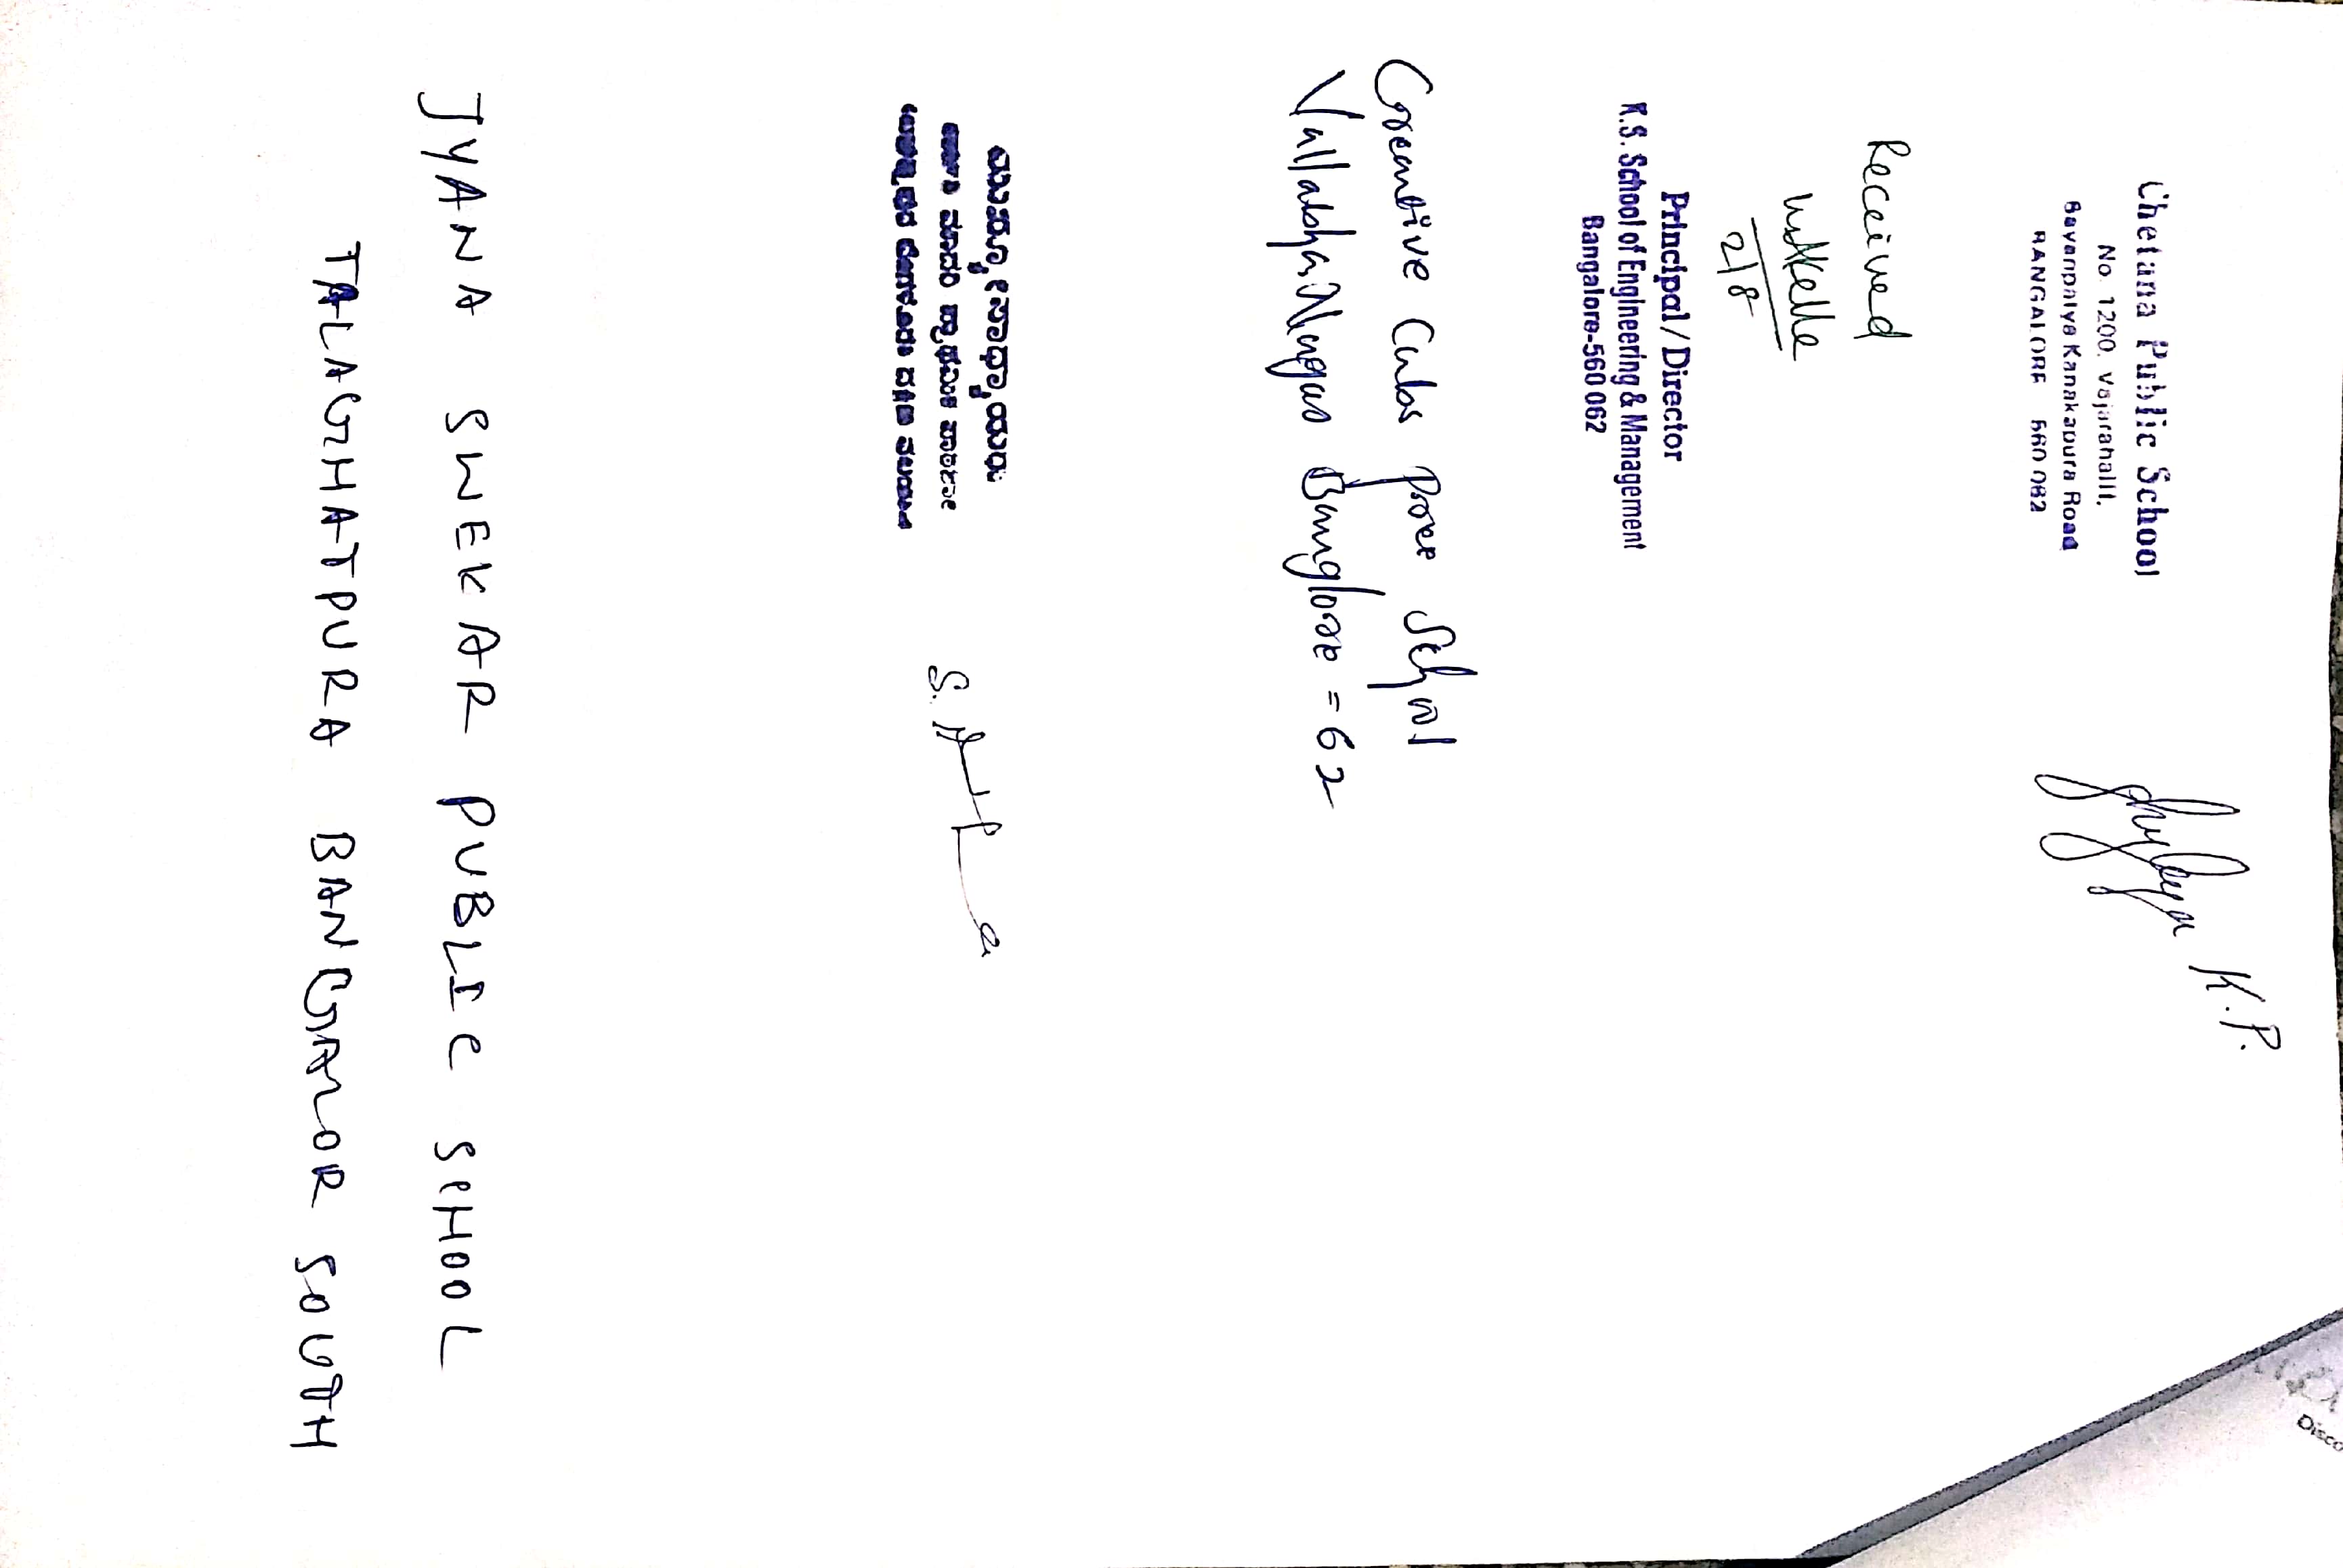 Chetana Public School
No. 1200, Vajarahalli,
Kanakapura Road
BANGALORE 560 062
K.P.
Received
2/8
Principal / Director
K.S. School of Engineering & Management
Bangalore-560 062
Creative Cubs pree School
Vallabha Nagar Banglore = 62
ಮುಖ್ಯೋಪಾಧ್ಯಾಯರು
S.
JYANA SWEKAR PUBLIC SCHOOL
TALAGHATPURA BANGALOR SOUTH
Disco